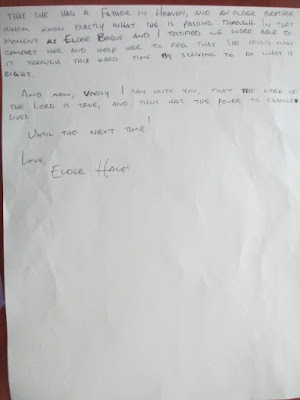 THAT SHE HAD A FATHER IN HEAVEN, AND AN OLDER BROTHER
WHOM KNOW EXACTLY WHAT SHE IS PASSING THROUGH IN THAT
MOMENT AS ELDER BAQUE AND I TESTIFIED WE WERE ABLE TO
COMFORT HER AND HELP HER TO FEEL THAT SHE COULD MAKE
IT THROUGH THIS HARD TIME BY STRIVING TO DO WHAT IS
RIGHT.
AND NOW, VERILY I SAY UNTO YOU, THAT THE WORK OF
THE LORD IS TRUE, AND THUS HAS THE POWER TO CHANGE
LIVES.
UNTIL THE NEXT TIME!
LOVE,
ELDER